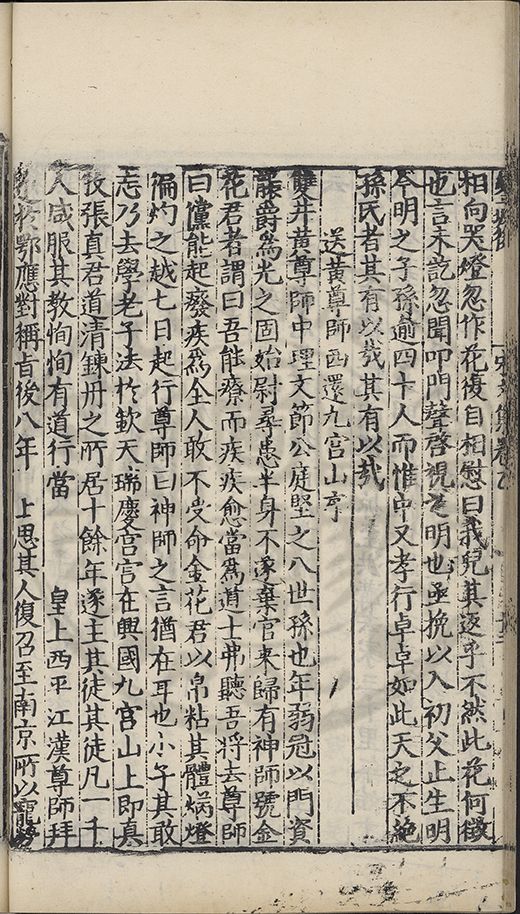 相向哭燈忽作花復自相慰曰我兒其返乎不然此花何徵
也言未訖忽聞叩門聲啓視之明也亟挽以入初父止生明
今明之子孫逾四十人而惟中又孝行卓卓如此天之不絶
孫氏者其有以哉其有以哉
送黃尊師西還九宮山序
雙井黃尊師中理文節公庭堅之八世孫也年弱冠以門資
爵爲光之固始尉尋患半身不遂棄官来歸有神師號金
花君者謂曰吾能療而疾疾愈當爲道士弗聽吾將去尊師
曰儻能起癈疾爲全人敢不受命金花君以帛粘其體焫燈
徧灼之越七日起行尊師曰神師之言猶在耳也小子其敢
忘乃去學老子法於欽天瑞慶宮宮在興國九宮山上即真
牧張真君道清鍊丹之所居十餘年遂主其徒其徒凡一千
人咸服其教恂恂有道行當　皇上西平江漢尊師拜
於鄂應對稱旨後八年　上思其人復召至南京所以寵